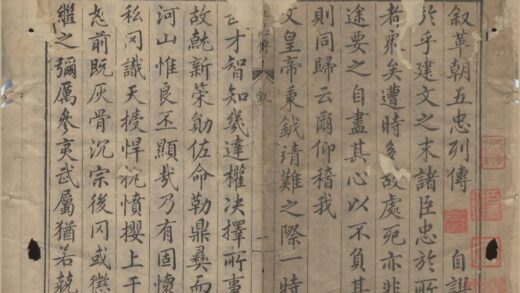 叙革朝五忠列傳 自譔
於乎建文之末諸臣忠於所
者眾矣遭時多故處死亦非
途要之自盡其心以不負其
則同歸云爾仰稽我
文皇帝秉鉞靖難之際一時
叙 一
才智知幾達權决擇所事
故能新策勛佐命勒鼎彝而
河山惟良丕顯哉乃有固懷
私冈識天授悍憤攖上干
前既灰骨沉宗後冈或懲
繼之彌厲參夷武屬猶若兢